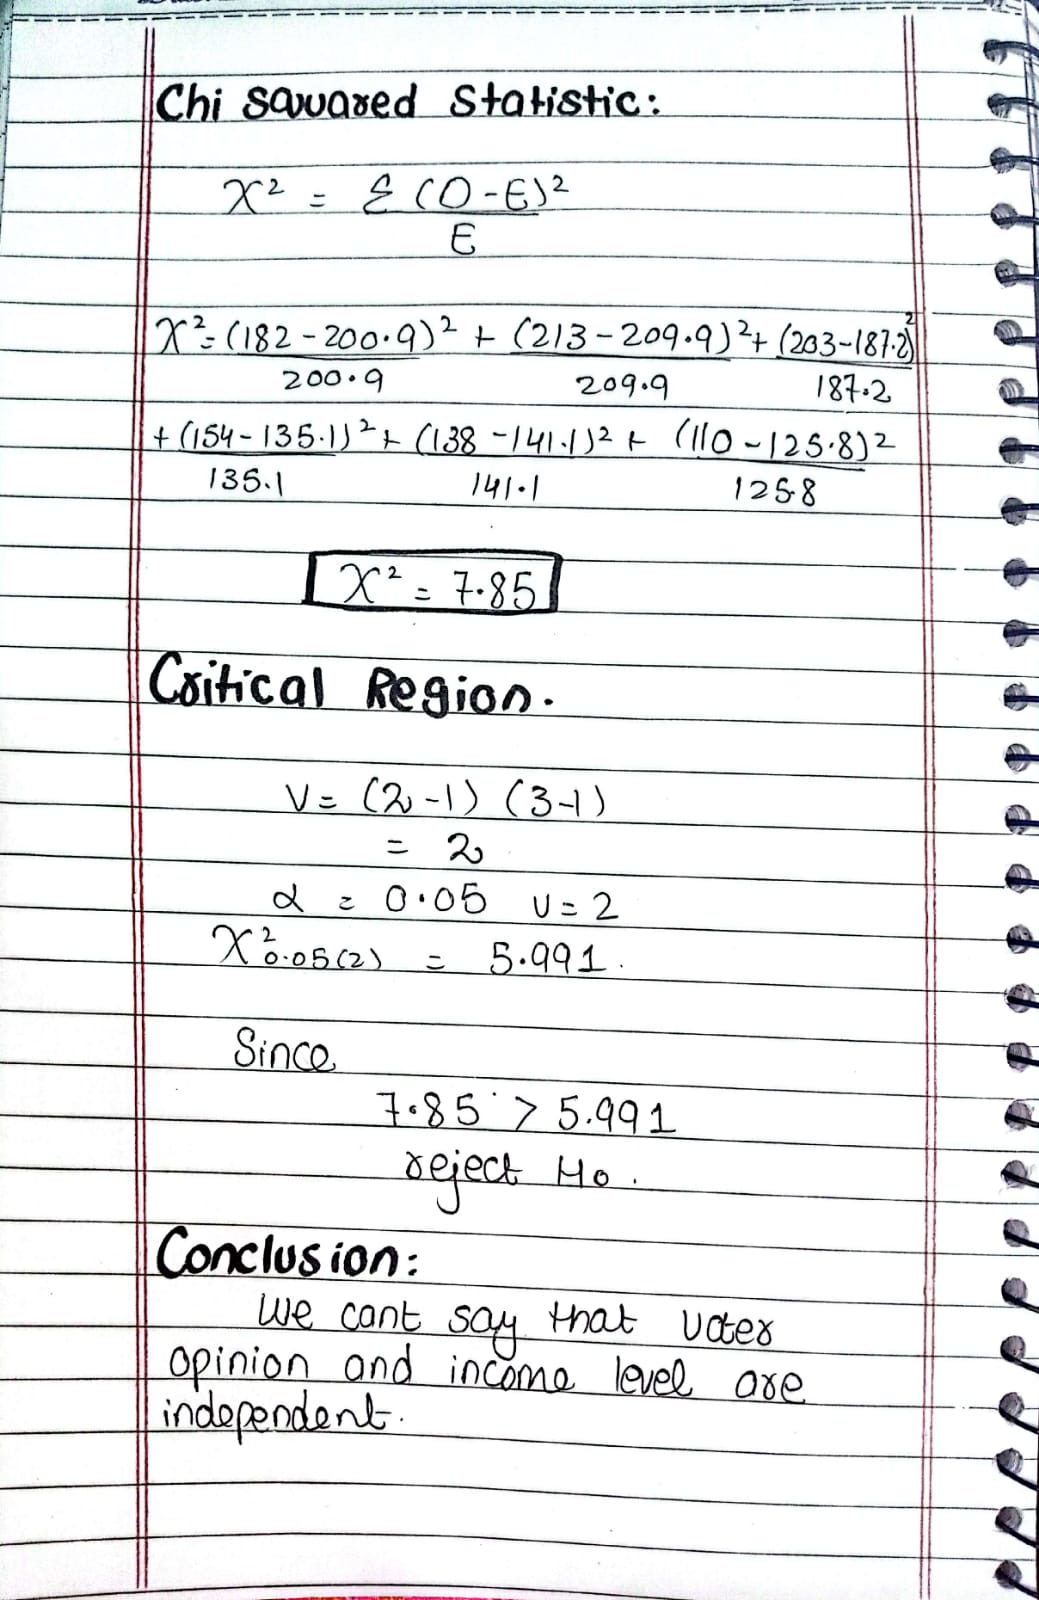 Chi Squared Statistic:
X² = Σ (O-E)²
E
X² = (182 - 200.9)² + (213 - 209.9)² + (203-187.2)²
200.9 209.9 187.2
+ (154 - 135.1)² + (138 - 141.1)² + (110 - 125.8)²
135.1 141.1 125.8
X² = 7.85
Critical Region.
V = (2-1) (3-1)
= 2
α = 0.05 V = 2
X²0.05(2) = 5.991.
Since
7.85 > 5.991
reject Ho.
Conclusion:
We cant say that voter
opinion and income level are
independent.